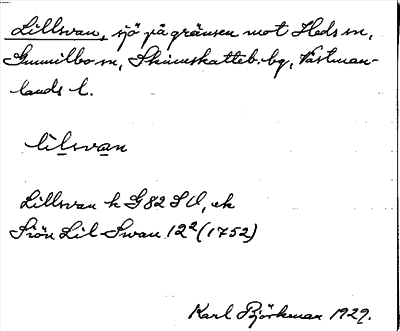 Lillsvan, sjö på gränsen mot Heds sn,
Gunnilbo sn, Skinnskatteb. bg, Västman-
lands l.
lilsvan
Lillsvan k G 82 SO, ek
Siön Lil Swan 12² (1752)
Karl Björkman 1929.